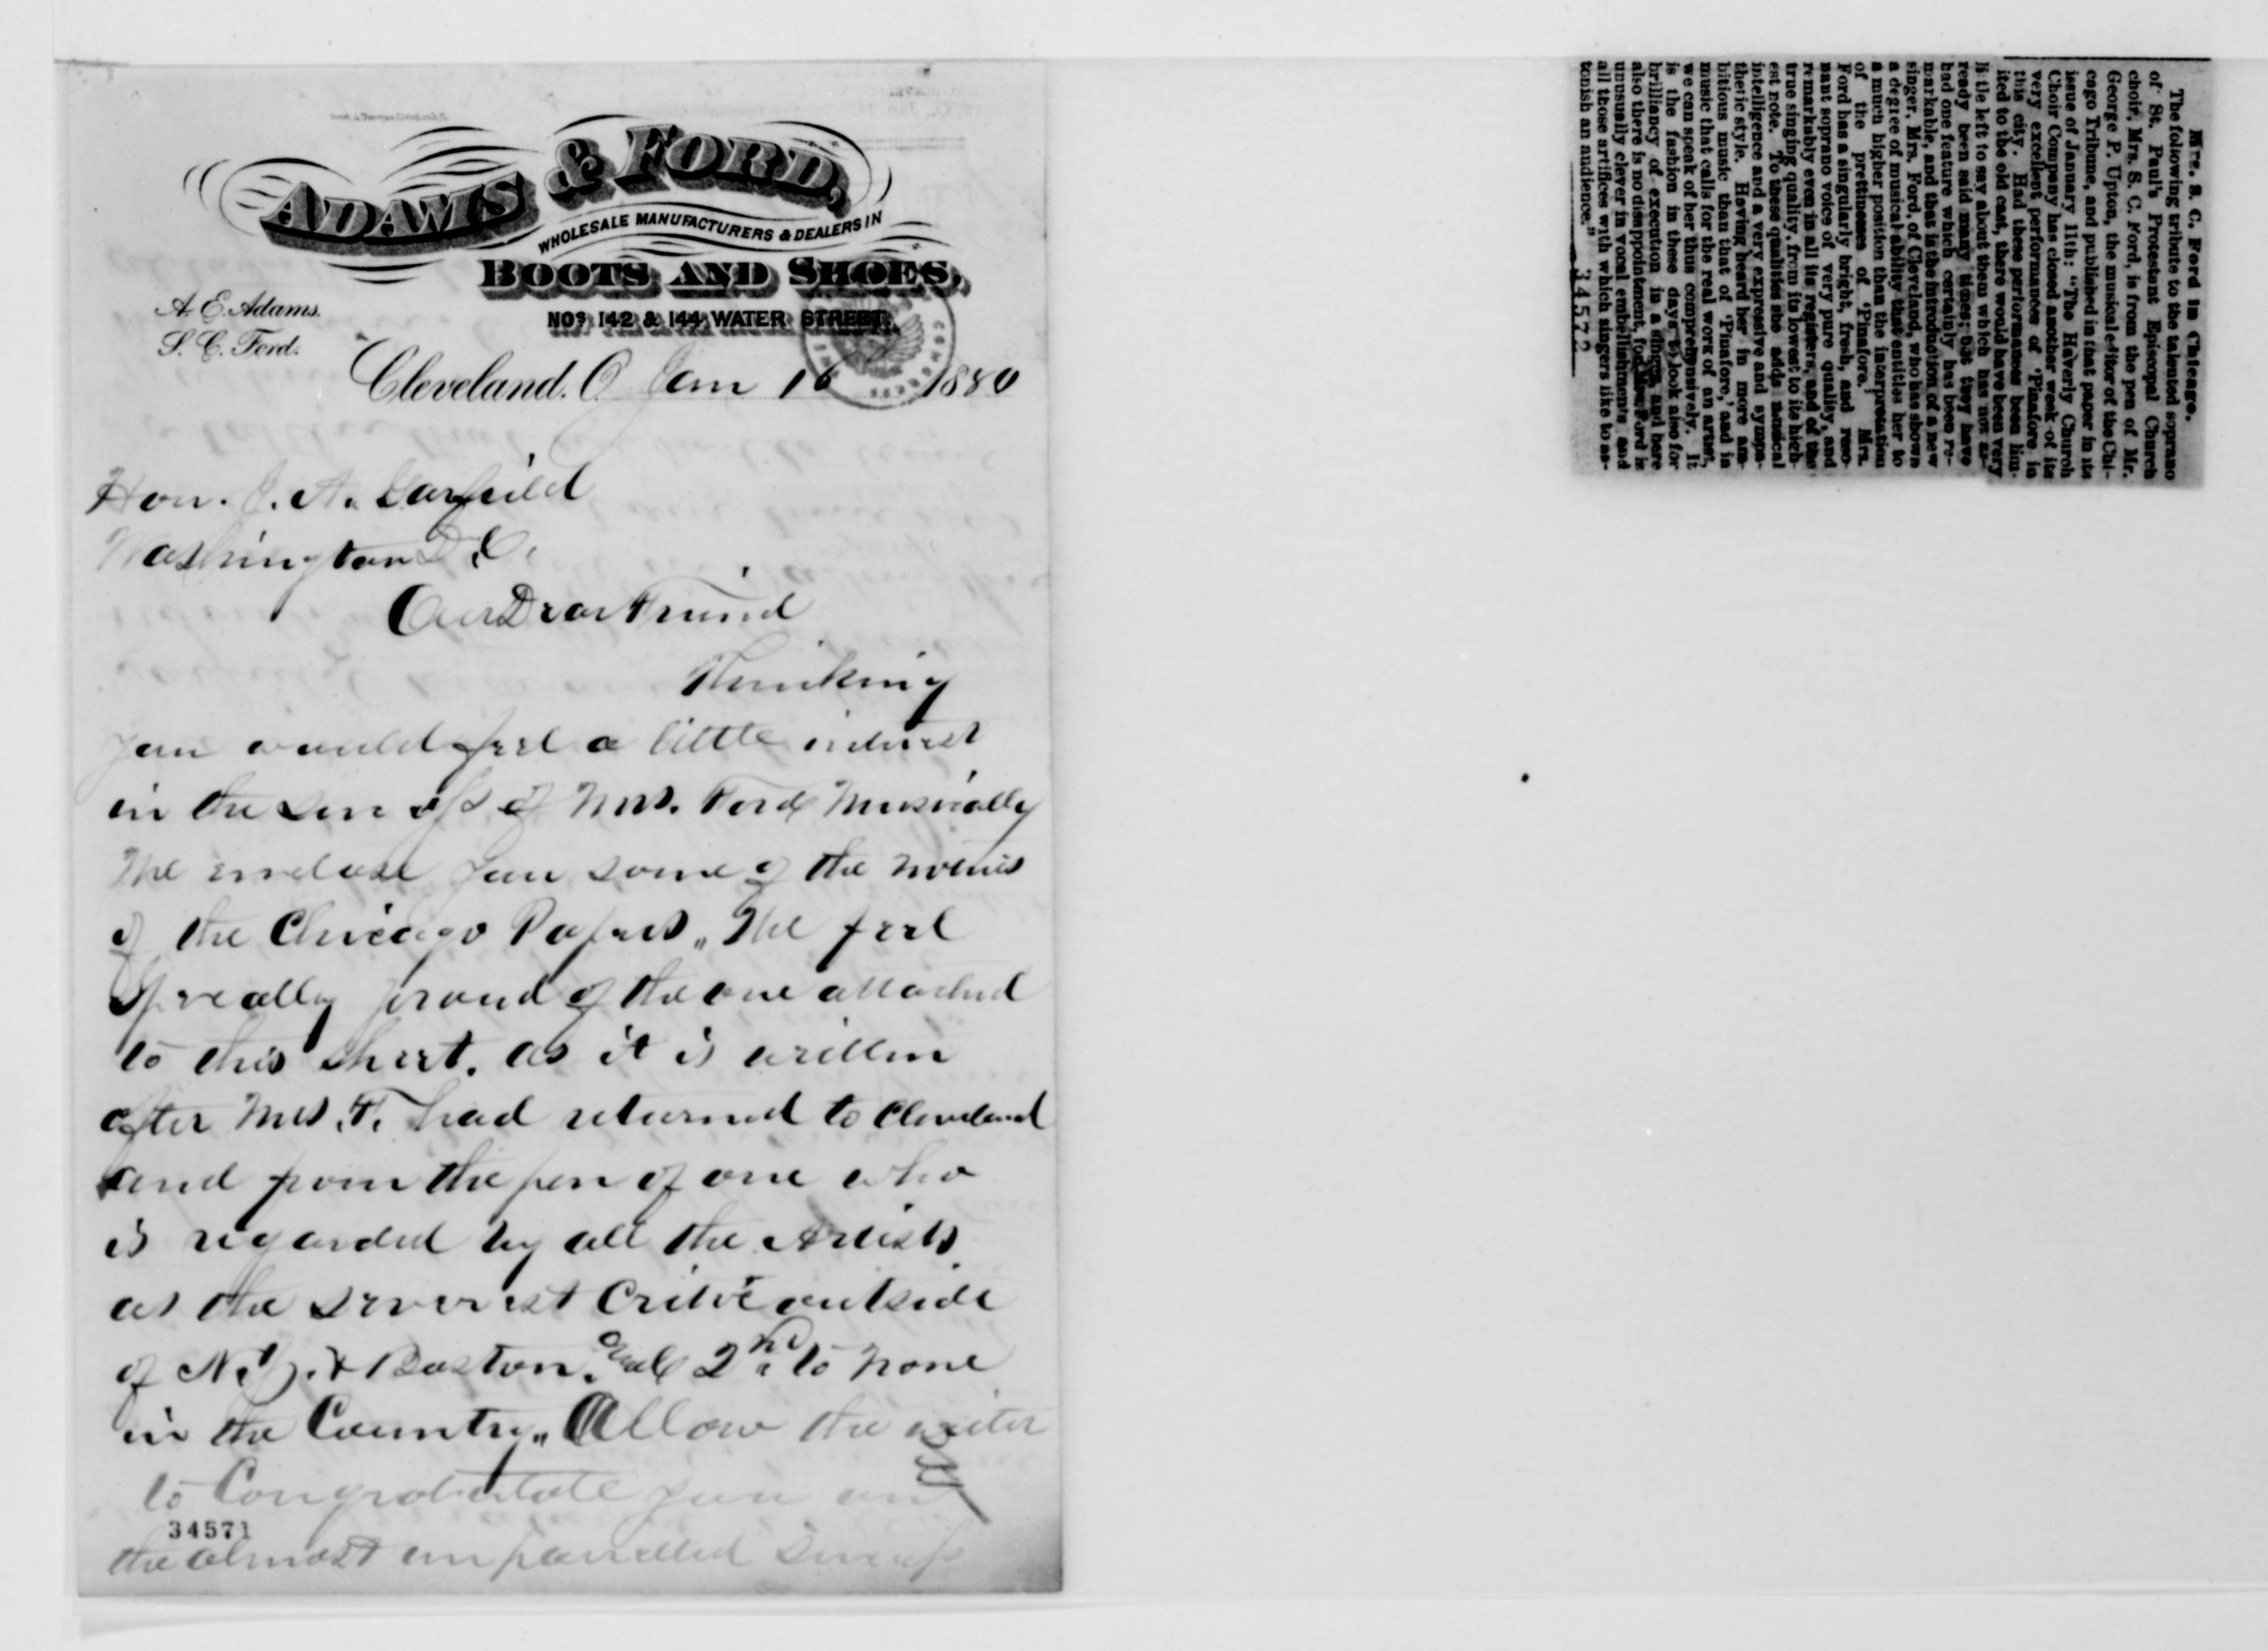 ADAMS & FORD,
WHOLESALE MANUFACTURERS & DEALERS IN
BOOTS AND SHOES,
NOS 142 & 144 WATER STREET.
A. E. Adams.
S. C. Ford.
Cleveland. O Jan 16 1880
Hon. J. A. Garfield
Washington D.C.
Our Dear Friend
Thinking
you would feel a little interest
in the success of Mrs. Ford Musically
We enclose you some of the notices
of the Chicago Papers. We feel
Specially proud of the one attached
to this sheet. as it is written
after Mrs. F. had returned to Cleveland
and from the pen of one who
is regarded by all the Artists
as the severest Critic outside
of N.Y. & Boston. and 2nd to none
in the Country. Allow the writer
to Congratulate you on
the almost unparalled success
34571
Mrs. S. C. Ford in Chicago.
The following tribute to the talented soprano
of St. Paul's Protestant Episcopal Church
choir, Mrs. S. C. Ford, is from the pen of Mr.
George P. Upton, the musical editor of the Chi-
cago Tribune, and published in that paper in its
issue of January 11th: "The Haverly Church
Choir Company has closed another week of its
very excellent performances of 'Pinafore' in
this city. Had these performances been lim-
ited to the old cast, there would have been very
little left to say about them which has not al-
ready been said many times; but they have
had one feature which certainly has been re-
markable, and that is the introduction of a new
singer, Mrs. Ford, of Cleveland, who has shown
a degree of musical ability that entitles her to
a much higher position than the interpretation
of the prettinesses of 'Pinafore.' Mrs.
Ford has a singularly bright, fresh, and reso-
nant soprano voice of very pure quality, and
remarkably even in all its registers, and of the
true singing quality, from its lowest to its high-
est note. To these qualities she adds musical
intelligence and a very expressive and sympa-
thetic style. Having heard her in more am-
bitious music than that of 'Pinafore,' and in
music that calls for the real work of an artist,
we can speak of her thus comprehensively. It
is the fashion in these days to look also for
brilliancy of execution in a singer, and here
also there is no disappointment, for Mrs. Ford is
unusually clever in vocal embellishments and
all those artifices with which singers like to as-
tonish an audience."
34572